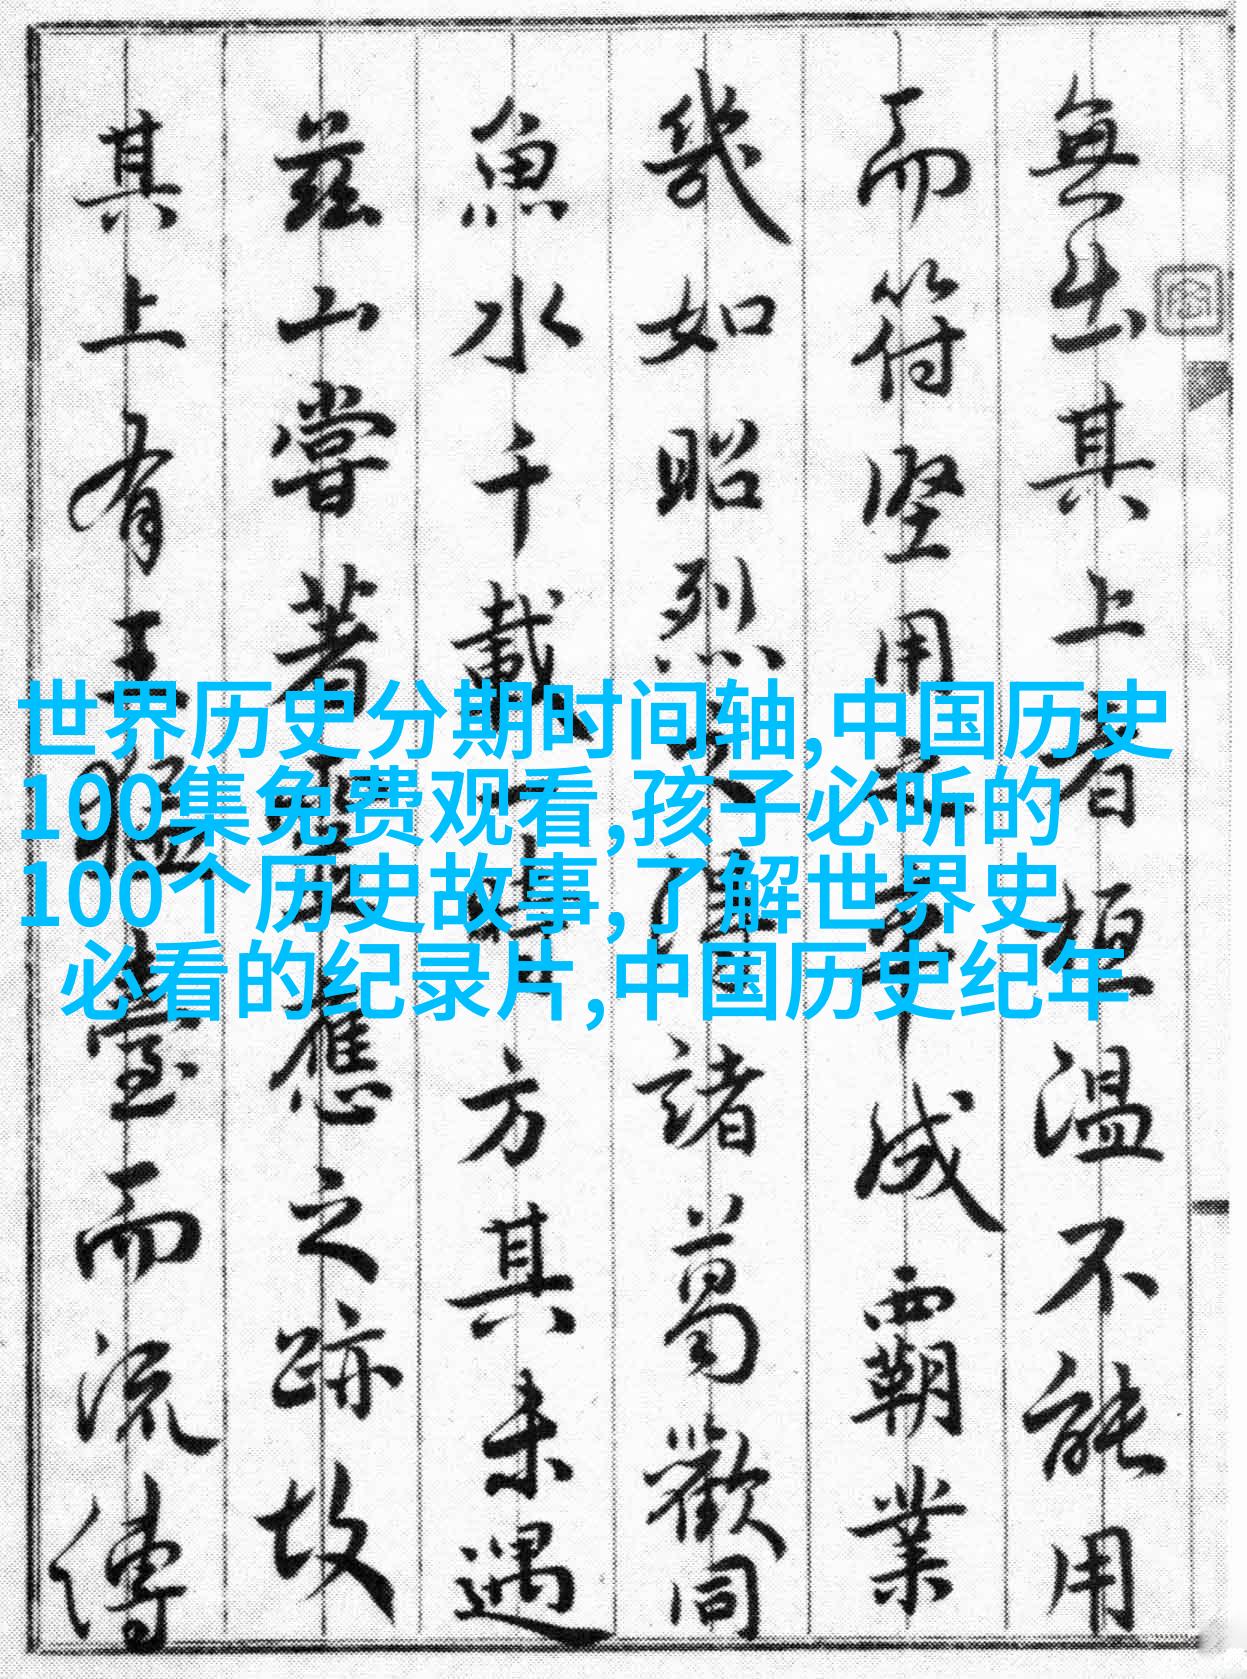 世界历史分期时间轴,中国历史
100集免费观看,孩子必听的
100个历史故事,了解世界史
必看的纪录片,中国历史纪年
無出其上者桓温不能用
而符堅用之卒成霸業
幾如昭烈之得諸葛歡同
魚水千載一時方其未遇
兹山嘗著靈應之跡故
其上有王猛臺而流傳